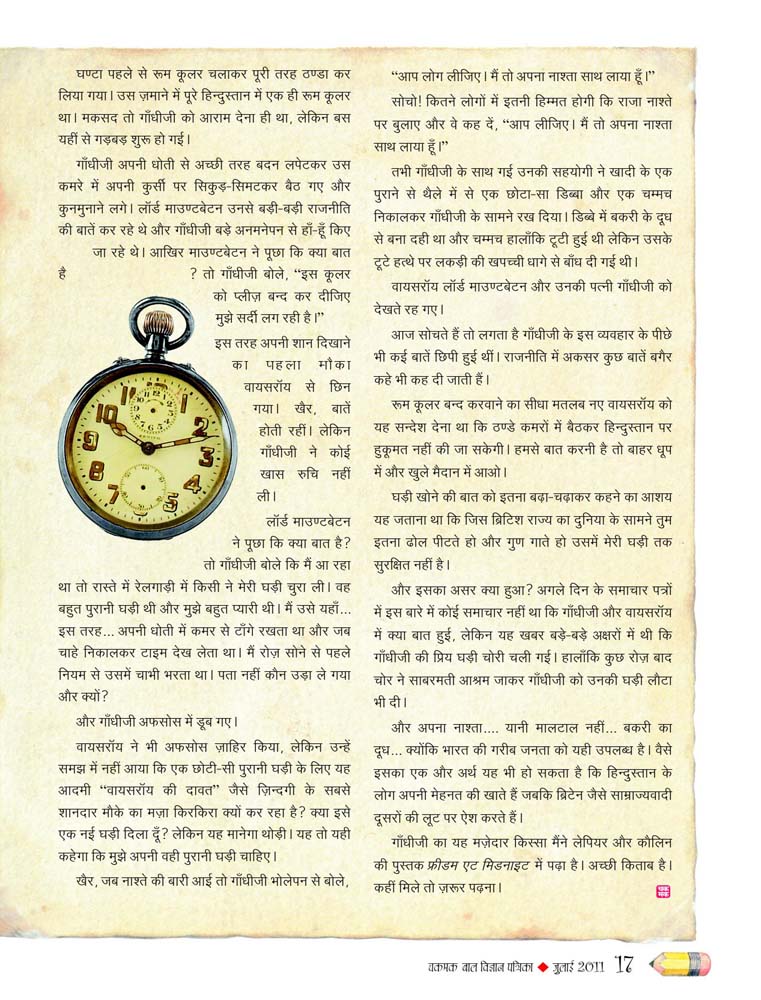 घण्टा पहले से रूम कूलर चलाकर पूरी तरह ठण्डा कर
लिया गया। उस ज़माने में पूरे हिन्दुस्तान में एक ही रूम कूलर
था। मकसद तो गाँधीजी को आराम देना ही था, लेकिन बस
यहीं से गड़बड़ शुरू हो गई।
गाँधीजी अपनी धोती से अच्छी तरह बदन लपेटकर उस
कमरे में अपनी कुर्सी पर सिकुड़-सिमटकर बैठ गए और
कुनमुनाने लगे। लॉर्ड माउण्टबेटन उनसे बड़ी-बड़ी राजनीति
की बातें कर रहे थे और गाँधीजी बड़े अनमनेपन से हाँ-हूँ किए
जा रहे थे। आखिर माउण्टबेटन ने पूछा कि क्या बात
है ? तो गाँधीजी बोले, “इस कूलर
को प्लीज़ बन्द कर दीजिए
मुझे सर्दी लग रही है।”
इस तरह अपनी शान दिखाने
का पहला मौका
वायसरॉय से छिन
गया। खैर, बातें
होती रहीं। लेकिन
गाँधीजी ने कोई
खास रुचि नहीं
ली।
लॉर्ड माउण्टबेटन
ने पूछा कि क्या बात है?
तो गाँधीजी बोले कि मैं आ रहा
था तो रास्ते में रेलगाड़ी में किसी ने मेरी घड़ी चुरा ली। वह
बहुत पुरानी घड़ी थी और मुझे बहुत प्यारी थी। मैं उसे यहाँ...
इस तरह... अपनी धोती में कमर से टाँगे रखता था और जब
चाहे निकालकर टाइम देख लेता था। मैं रोज़ सोने से पहले
नियम से उसमें चाभी भरता था। पता नहीं कौन उड़ा ले गया
और क्यों?
और गाँधीजी अफसोस में डूब गए।
वायसरॉय ने भी अफसोस ज़ाहिर किया, लेकिन उन्हें
समझ में नहीं आया कि एक छोटी-सी पुरानी घड़ी के लिए यह
आदमी “वायसरॉय की दावत” जैसे ज़िन्दगी के सबसे
शानदार मौके का मज़ा किरकिरा क्यों कर रहा है? क्या इसे
एक नई घड़ी दिला दूँ? लेकिन यह मानेगा थोड़ी। यह तो यही
कहेगा कि मुझे अपनी वही पुरानी घड़ी चाहिए।
खैर, जब नाश्ते की बारी आई तो गाँधीजी भोलेपन से बोले,
“आप लोग लीजिए। मैं तो अपना नाश्ता साथ लाया हूँ।”
सोचो! कितने लोगों में इतनी हिम्मत होगी कि राजा नाश्ते
पर बुलाए और वे कह दें, “आप लीजिए। मैं तो अपना नाश्ता
साथ लाया हूँ।”
तभी गाँधीजी के साथ गई उनकी सहयोगी ने खादी के एक
पुराने से थैले में से एक छोटा-सा डिब्बा और एक चम्मच
निकालकर गाँधीजी के सामने रख दिया। डिब्बे में बकरी के दूध
से बना दही था और चम्मच हालाँकि टूटी हुई थी लेकिन उसके
टूटे हत्थे पर लकड़ी की खपच्ची धागे से बाँध दी गई थी।
वायसरॉय लॉर्ड माउण्टबेटन और उनकी पत्नी गाँधीजी को
देखते रह गए।
आज सोचते हैं तो लगता है गाँधीजी के इस व्यवहार के पीछे
भी कई बातें छिपी हुई थीं। राजनीति में अकसर कुछ बातें बगैर
कहे भी कह दी जाती हैं।
रूम कूलर बन्द करवाने का सीधा मतलब नए वायसरॉय को
यह सन्देश देना था कि ठण्डे कमरों में बैठकर हिन्दुस्तान पर
हुकूमत नहीं की जा सकेगी। हमसे बात करनी है तो बाहर धूप
में और खुले मैदान में आओ।
घड़ी खोने की बात को इतना बढ़ा-चढ़ाकर कहने का आशय
यह जताना था कि जिस ब्रिटिश राज्य का दुनिया के सामने तुम
इतना ढोल पीटते हो और गुण गाते हो उसमें मेरी घड़ी तक
सुरक्षित नहीं है।
और इसका असर क्या हुआ? अगले दिन के समाचार पत्रों
में इस बारे में कोई समाचार नहीं था कि गाँधीजी और वायसरॉय
में क्या बात हुई, लेकिन यह खबर बड़े-बड़े अक्षरों में थी कि
गाँधीजी की प्रिय घड़ी चोरी चली गई। हालाँकि कुछ रोज़ बाद
चोर ने साबरमती आश्रम जाकर गाँधीजी को उनकी घड़ी लौटा
भी दी।
और अपना नाश्ता.... यानी मालटाल नहीं... बकरी का
दूध... क्योंकि भारत की गरीब जनता को यही उपलब्ध है। वैसे
इसका एक और अर्थ यह भी हो सकता है कि हिन्दुस्तान के
लोग अपनी मेहनत की खाते हैं जबकि ब्रिटेन जैसे साम्राज्यवादी
दूसरों की लूट पर ऐश करते हैं।
गाँधीजी का यह मज़ेदार किस्सा मैंने लेपियर और कौलिन
की पुस्तक फ्रीडम एट मिडनाइट में पढ़ा है। अच्छी किताब है।
कहीं मिले तो ज़रूर पढ़ना।
चक
मक
चकमक बाल विज्ञान पत्रिका ◆ जुलाई 2011 17